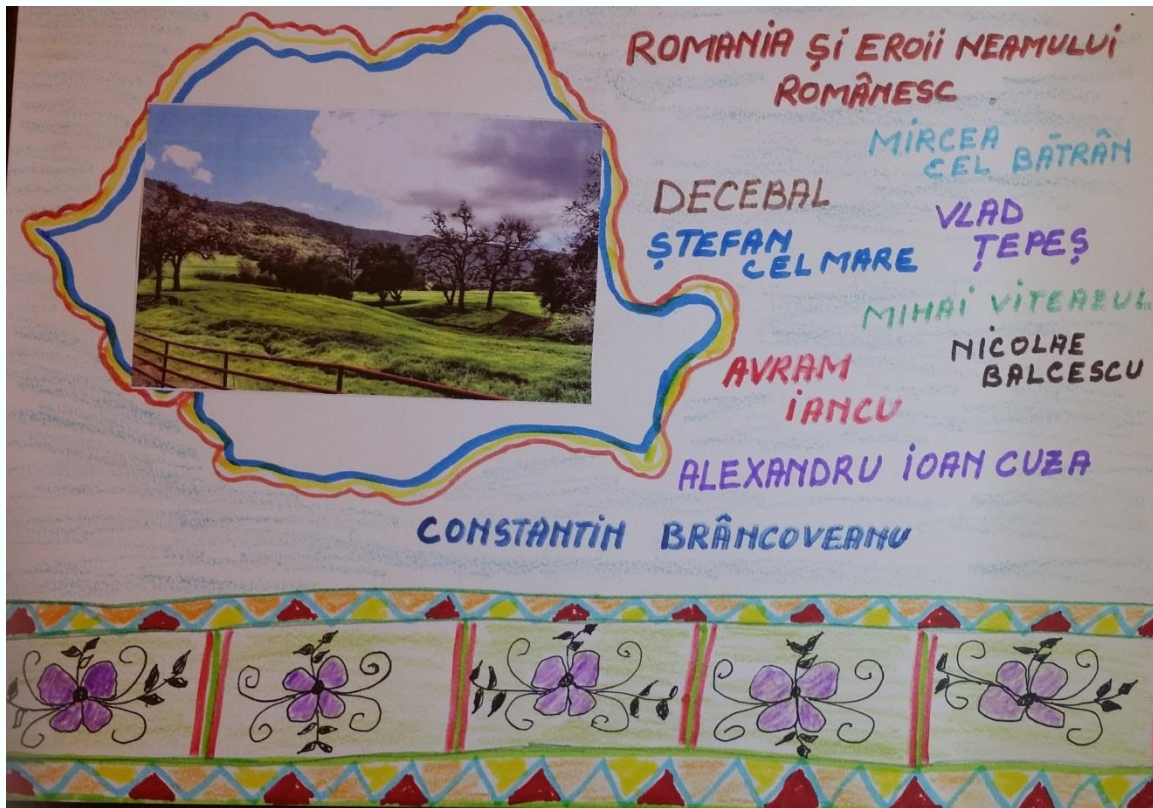 ROMANIA ȘI EROII NEAMULUI
ROMÂNESC
MIRCEA
CEL BĂTRÂN
DECEBAL
VLAD
ȚEPEȘ
ȘTEFAN
CEL MARE
MIHAI VITEAZUL
NICOLAE
BALCESCU
AVRAM
IANCU
ALEXANDRU IOAN CUZA
CONSTANTIN BRÂNCOVEANU